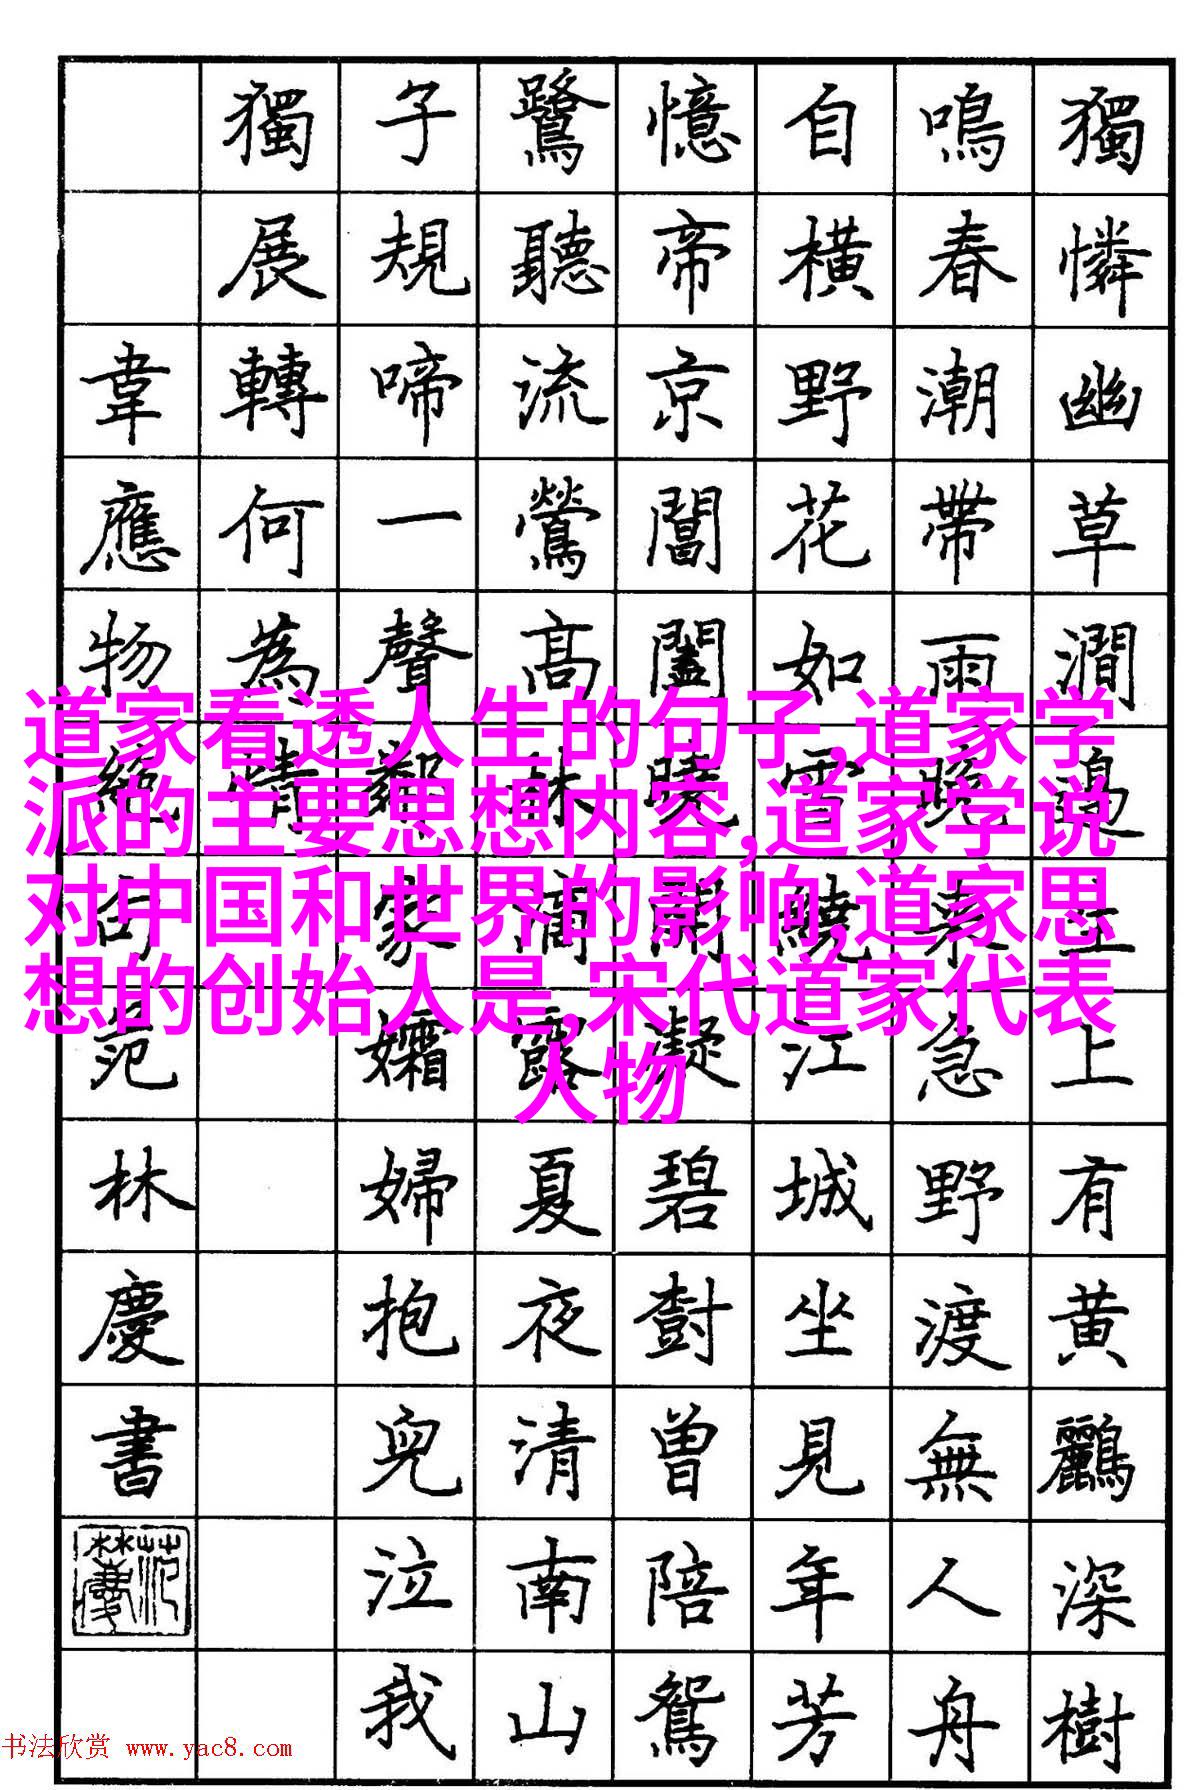 獨憐幽草澗邊生上有黄鸝深樹
鳴春潮帶雨晚來急野渡無人舟
自橫野花如雪繞江城坐見年芳
憶帝京閶闔曉開凝碧樹曾陪鴛
鷺聽流鶯高林滴露夏夜清南山
子規啼一聲鄰家孀婦抱兒泣我
獨展轉何為情
韋應物絕句范林慶書
道家看透人生的句子,道家学
派的主要思想内容,道家学说
对中国和世界的影响,道家思
想的创始人是,宋代道家代表
人物
书法欣赏 www.yac8.com